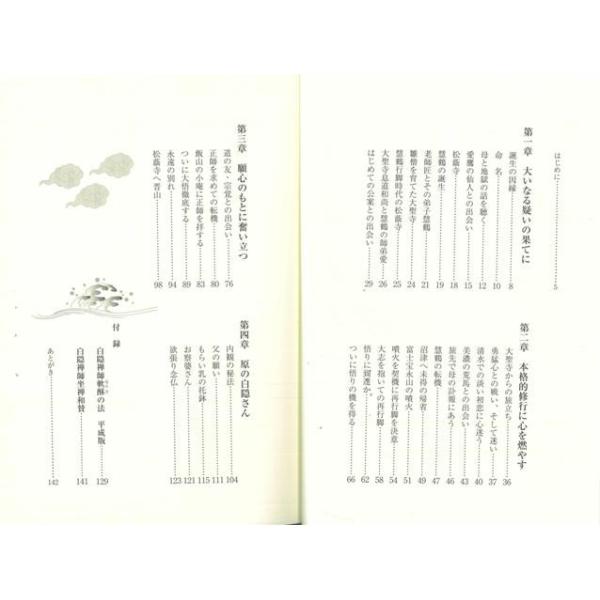 はじめに……5
第一章 大いなる疑いの果てに
誕生の因縁……8
命名……10
母と地獄の話を聴く……12
愛鷹の仙人との出会い……15
松蔭寺……18
慧鶴の誕生……19
老師匠とその弟子慧鶴……21
雛僧を育てた大聖寺……24
慧鶴行脚時代の松蔭寺……25
大聖寺息道和尚と慧鶴の師弟愛……26
はじめての公案との出会い……29
第二章 本格的修行に心を燃やす
大聖寺からの旅立ち……36
勇猛心との戦い、そして迷い……37
清水での淡い初恋に心迷う……40
美濃の荒馬との出会い……43
旅先で母の訃報にあう……46
慧鶴の転機……47
沼津へ未得の帰省……49
富士宝永山の噴火……51
噴火を契機に再行脚を決意……54
大志を抱いての再行脚……58
悟りに か……62
ついに悟りの機を得る……66
第三章 願心のもとに奮い立つ
道の友・宗覚との出会い……76
正師を求めての転機……80
飯山の小庵に正師を拝する……83
ついに大悟徹底する……89
永遠の別れ……94
松蔭寺へ晋山……98
第四章 原の白隠さん
内観の秘法……104
父の願い……111
もらい乳の托鉢……115
お察婆さん……121
欲張り念仏……123
付録
白隠禅師軟酥の法 平成版……129
白隠禅師坐禅和讃……141
あとがき……142